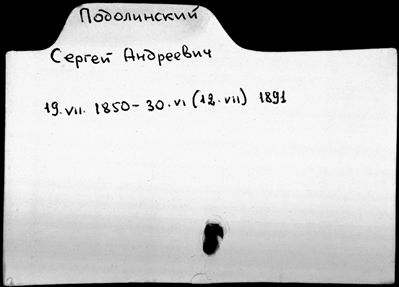 Подолинский
Сергей Андреевич
19.VII. 1850 - 30.VI (12.VII) 1891